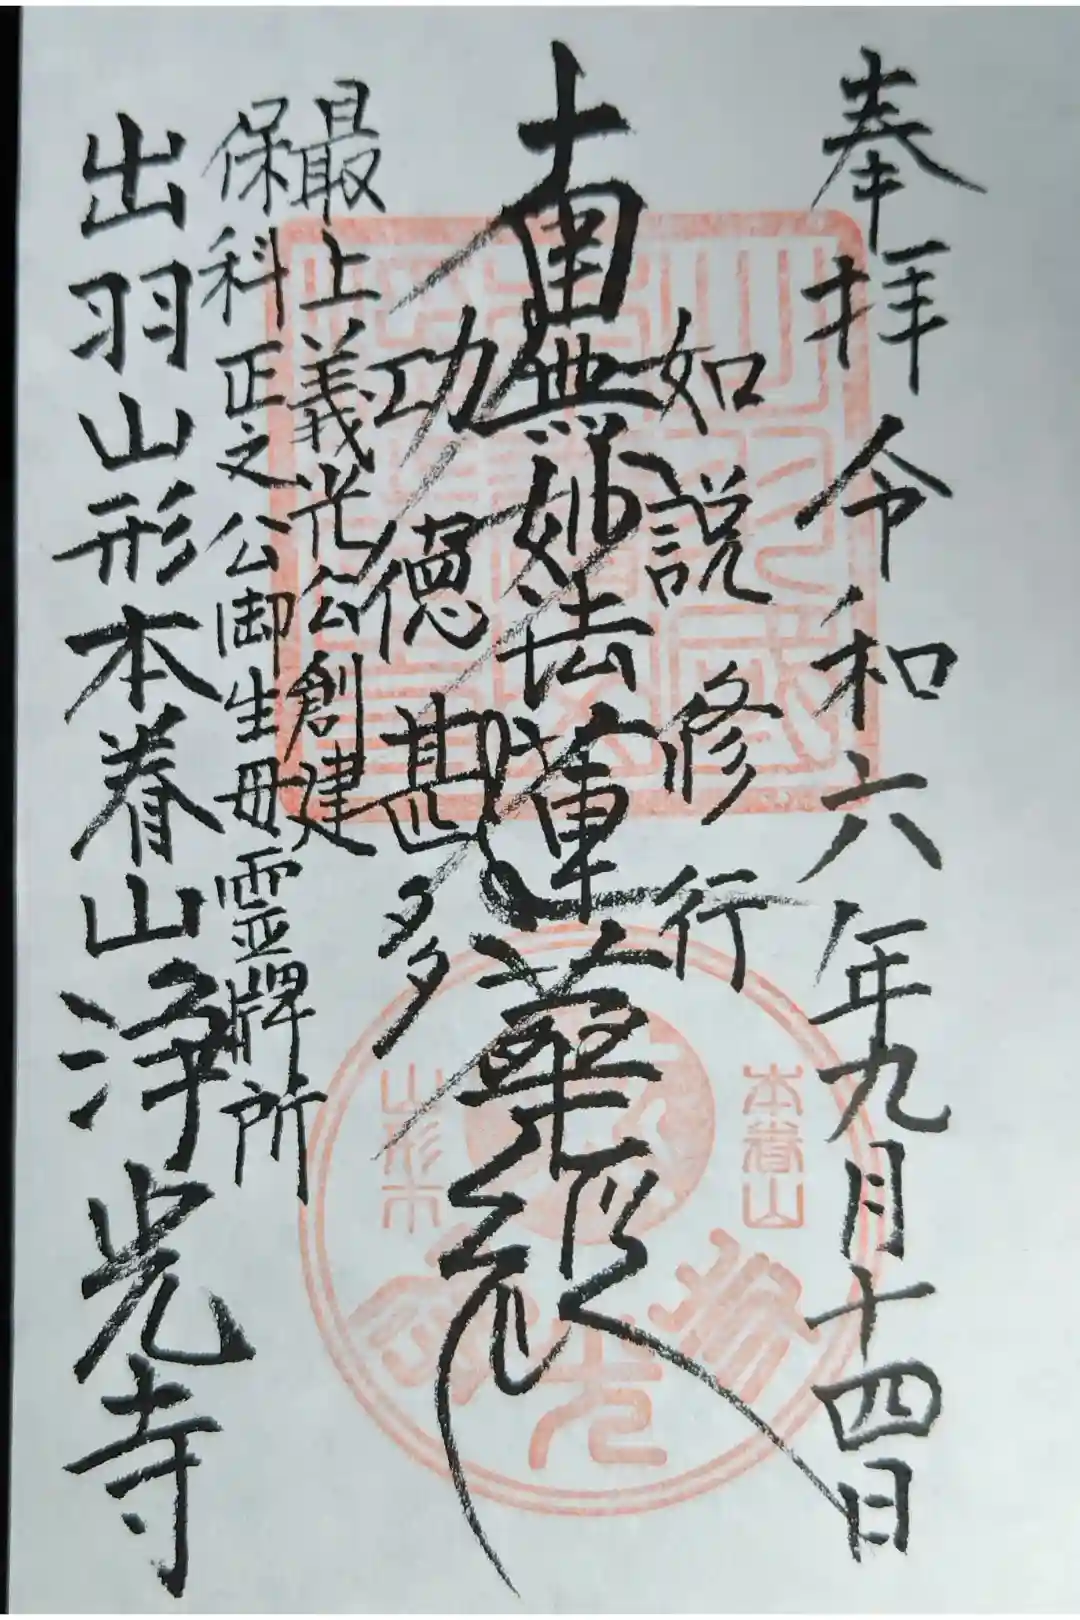 奉拝 令和六年九月十四日
如説修行
南無妙法蓮華経
功徳甚多
最上義光公創建
保科正之公御生母霊牌所
出羽山形本眷山浄光寺
本眷山
山形市
浄光寺